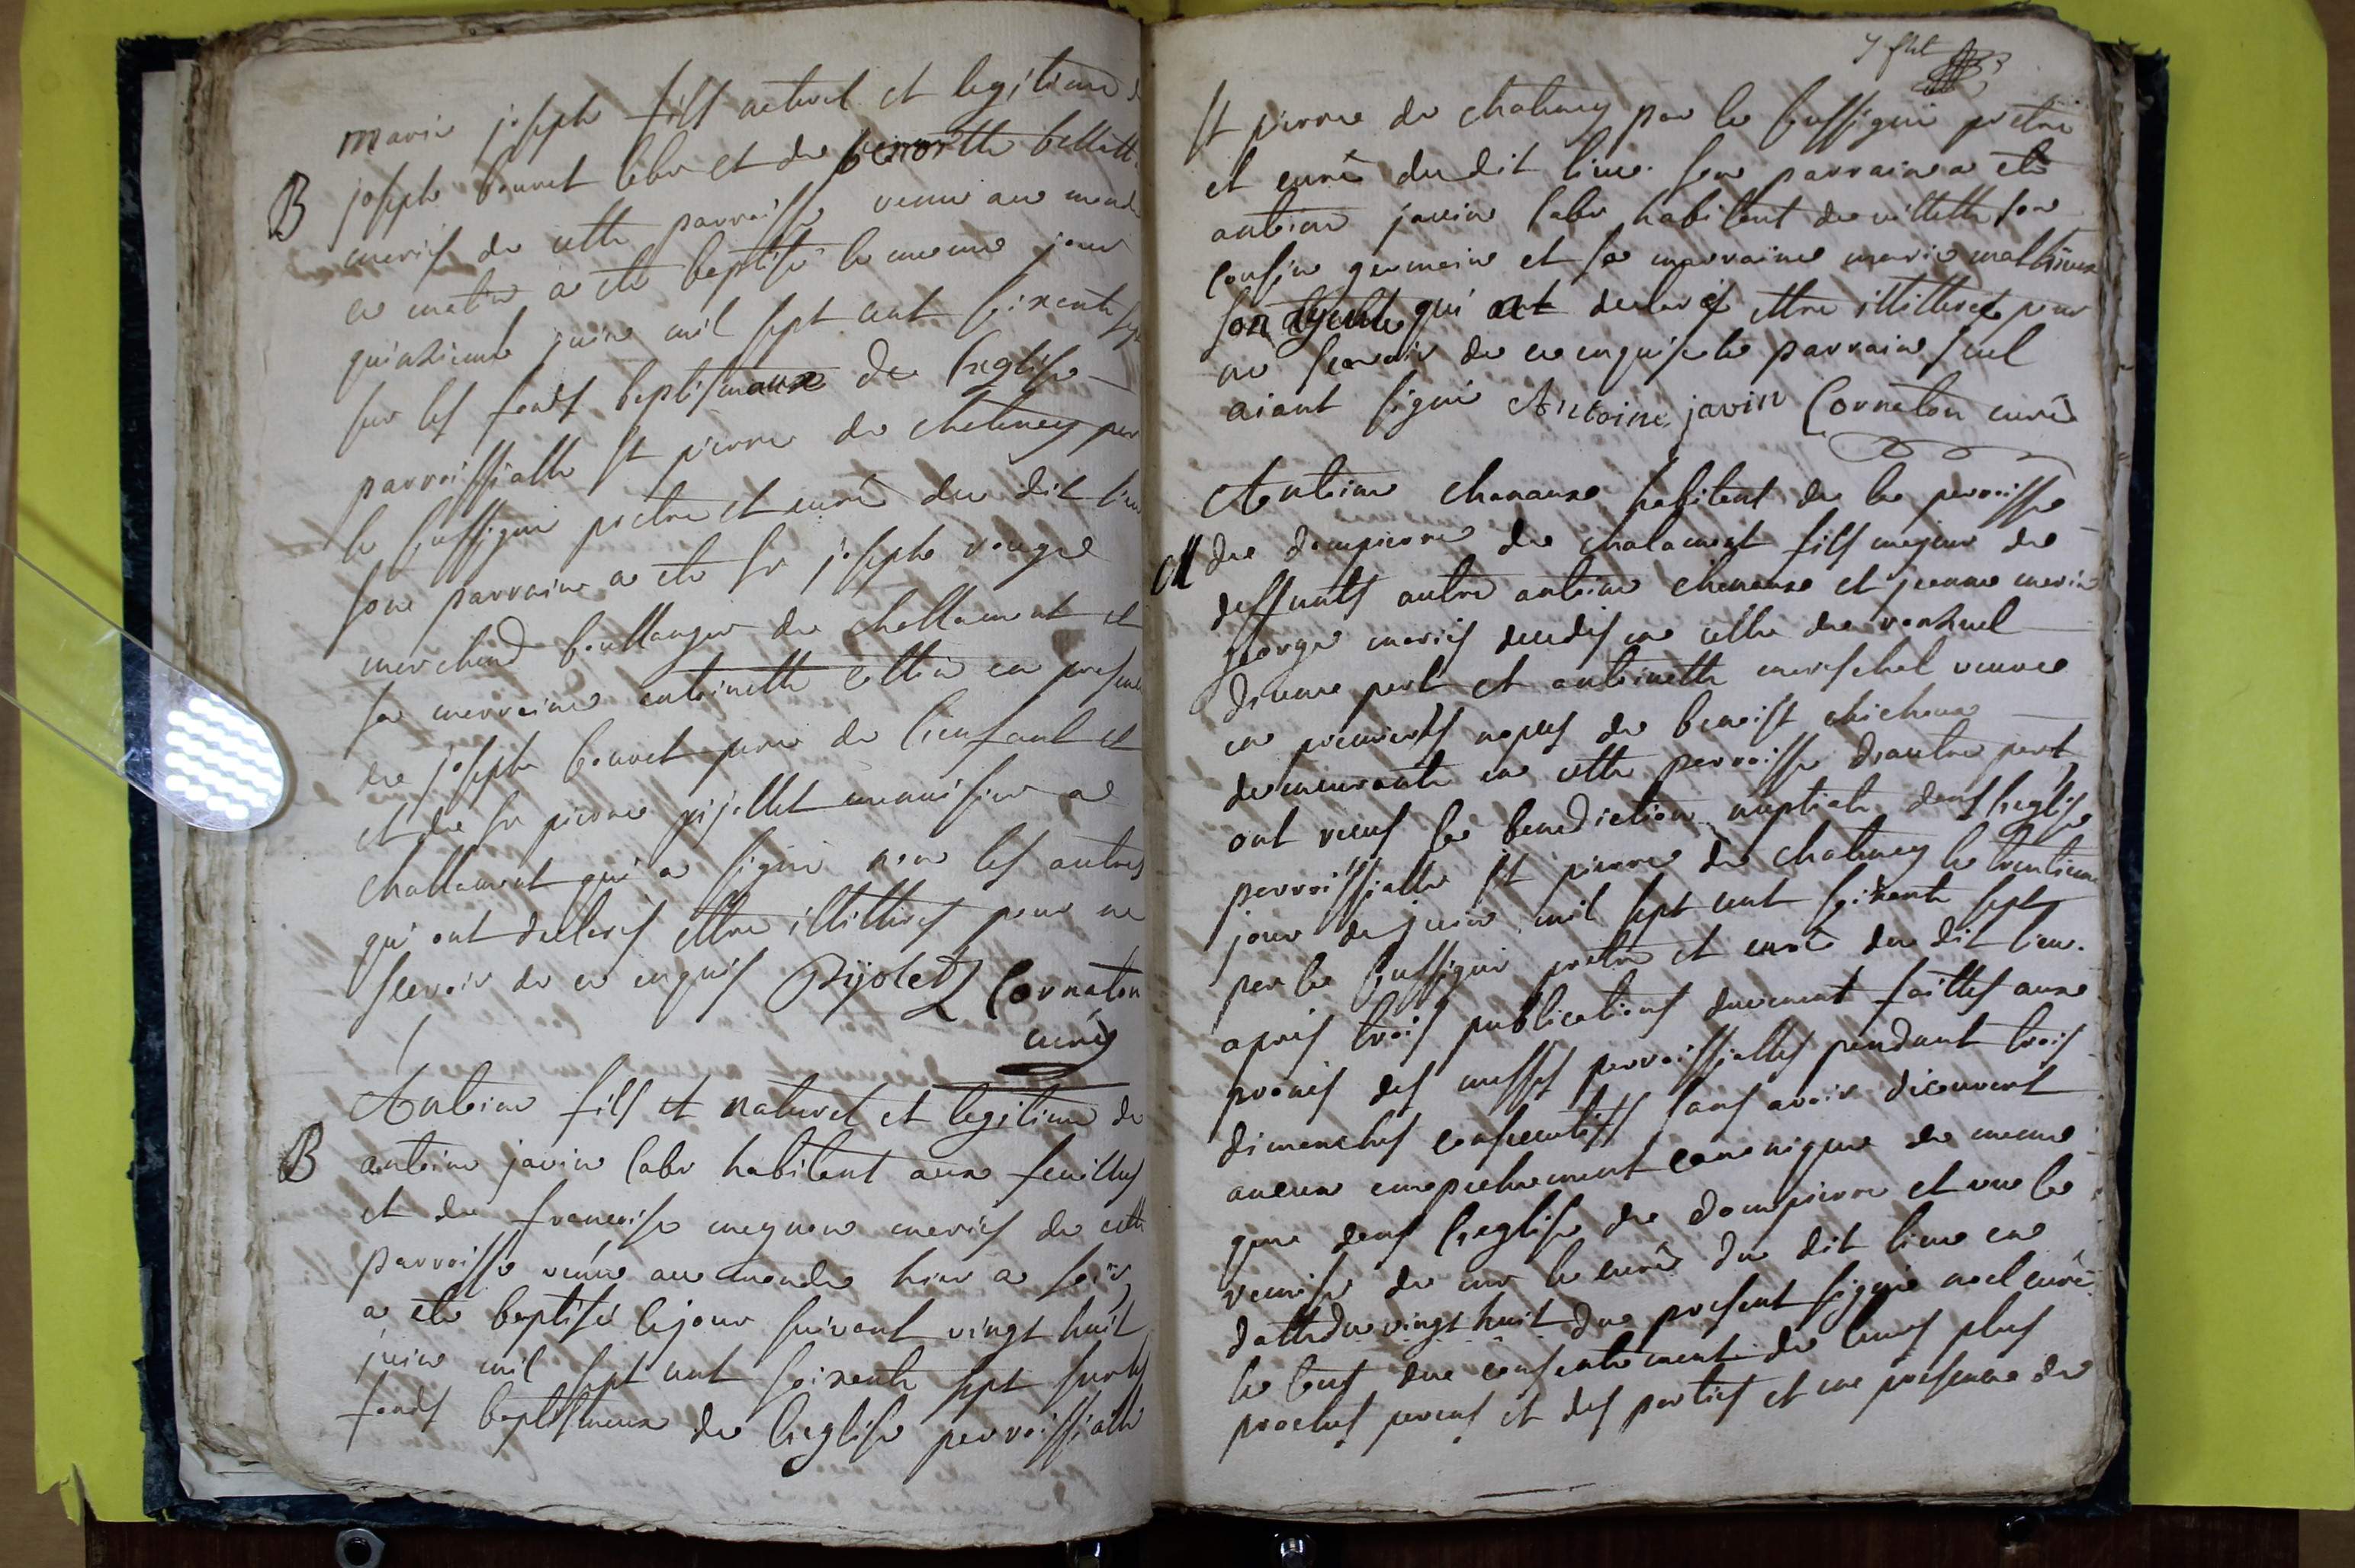 marie joseph fils naturel et legitime de
B joseph bouvet labr et de benoitte bellatt
mariés de cette parroisse venu au monde
ce matin a ete baptisé le meme jour
quinzieme juin mil sept cent soixante sept
sur les fonds baptismaux de l'eglise
parroissialle st pierre de chatenay par
le soussigné pretre et curé du dit lieu
son parrain a ete sr joseph vougé
marchand boullanger de challamont et
sa marraine antoinette cottin en presence
de joseph bouvet pere de l'enfant et
et de sr pierre pijollet menuisier a
challamont qui a signé non les autres
qui ont declarés ettre illitterés pour ne
scavoir de ce enquis Pijolet Cornaton
curé
Antoine fils et naturel et legitime de
B antoine javin labr habitant aux feuilles
et de francoise mariés de cette
parroisse venu au monde hier a soir
a ete baptisé le jour suivant vingt huit
juin mil sept cent soixante sept sur les
fonds baptismaux de l'eglise parroissialle
st pierre de chatenay par le soussigné pretre
et curé du dit lieu. son parrain a ete
antoine javin labr habitant de villette son
cousin germain et sa marraine marie mathieux
son qui ont declarés ettre illitteré pour
ne scavoir de ce enquis le parrain seul
aiant signé Antoine javin Cornaton curé
Antoine chanaux habitant de la parroisse
M de dompierre de chalamont fils majeur de
deffunts autre antoine chanaux et jeanne marie
george mariés decedés en celle de ronzuel
d'une part et antoinette marechal veuve
en premieres nopces de benoist chichoux
demeurante en cette parroisse d'autre part
ont receus la benediction nuptiale dans l'eglise
parroissialle st pierre de chatenay le trentieme
jour de juin mil sept cent soixante sept
par le soussigné pretre et curé du dit lieu.
après trois publications duement faittes aux
prones des messes parroissialles pendant trois
dimanches consecutifs sans avoir decouvert
aucun empechement canonique de meme
que dans l'eglise de dompierre et vu la
remise de mr le curé du dit lieu en
datte du vingt huit du present signé noel curé
le tout du consentement de leurs plus
proches parens et des parties et en presence de